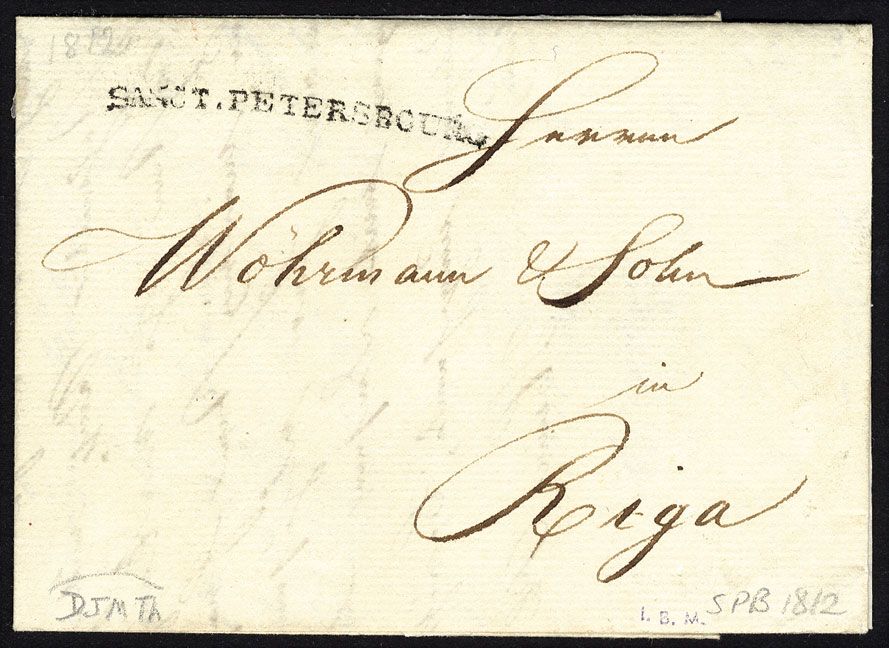 1812
SANCT.PETERSBOURG
Herren
Wöhrmann & Sohn
in
Riga
I. B. M.
SPB 1812